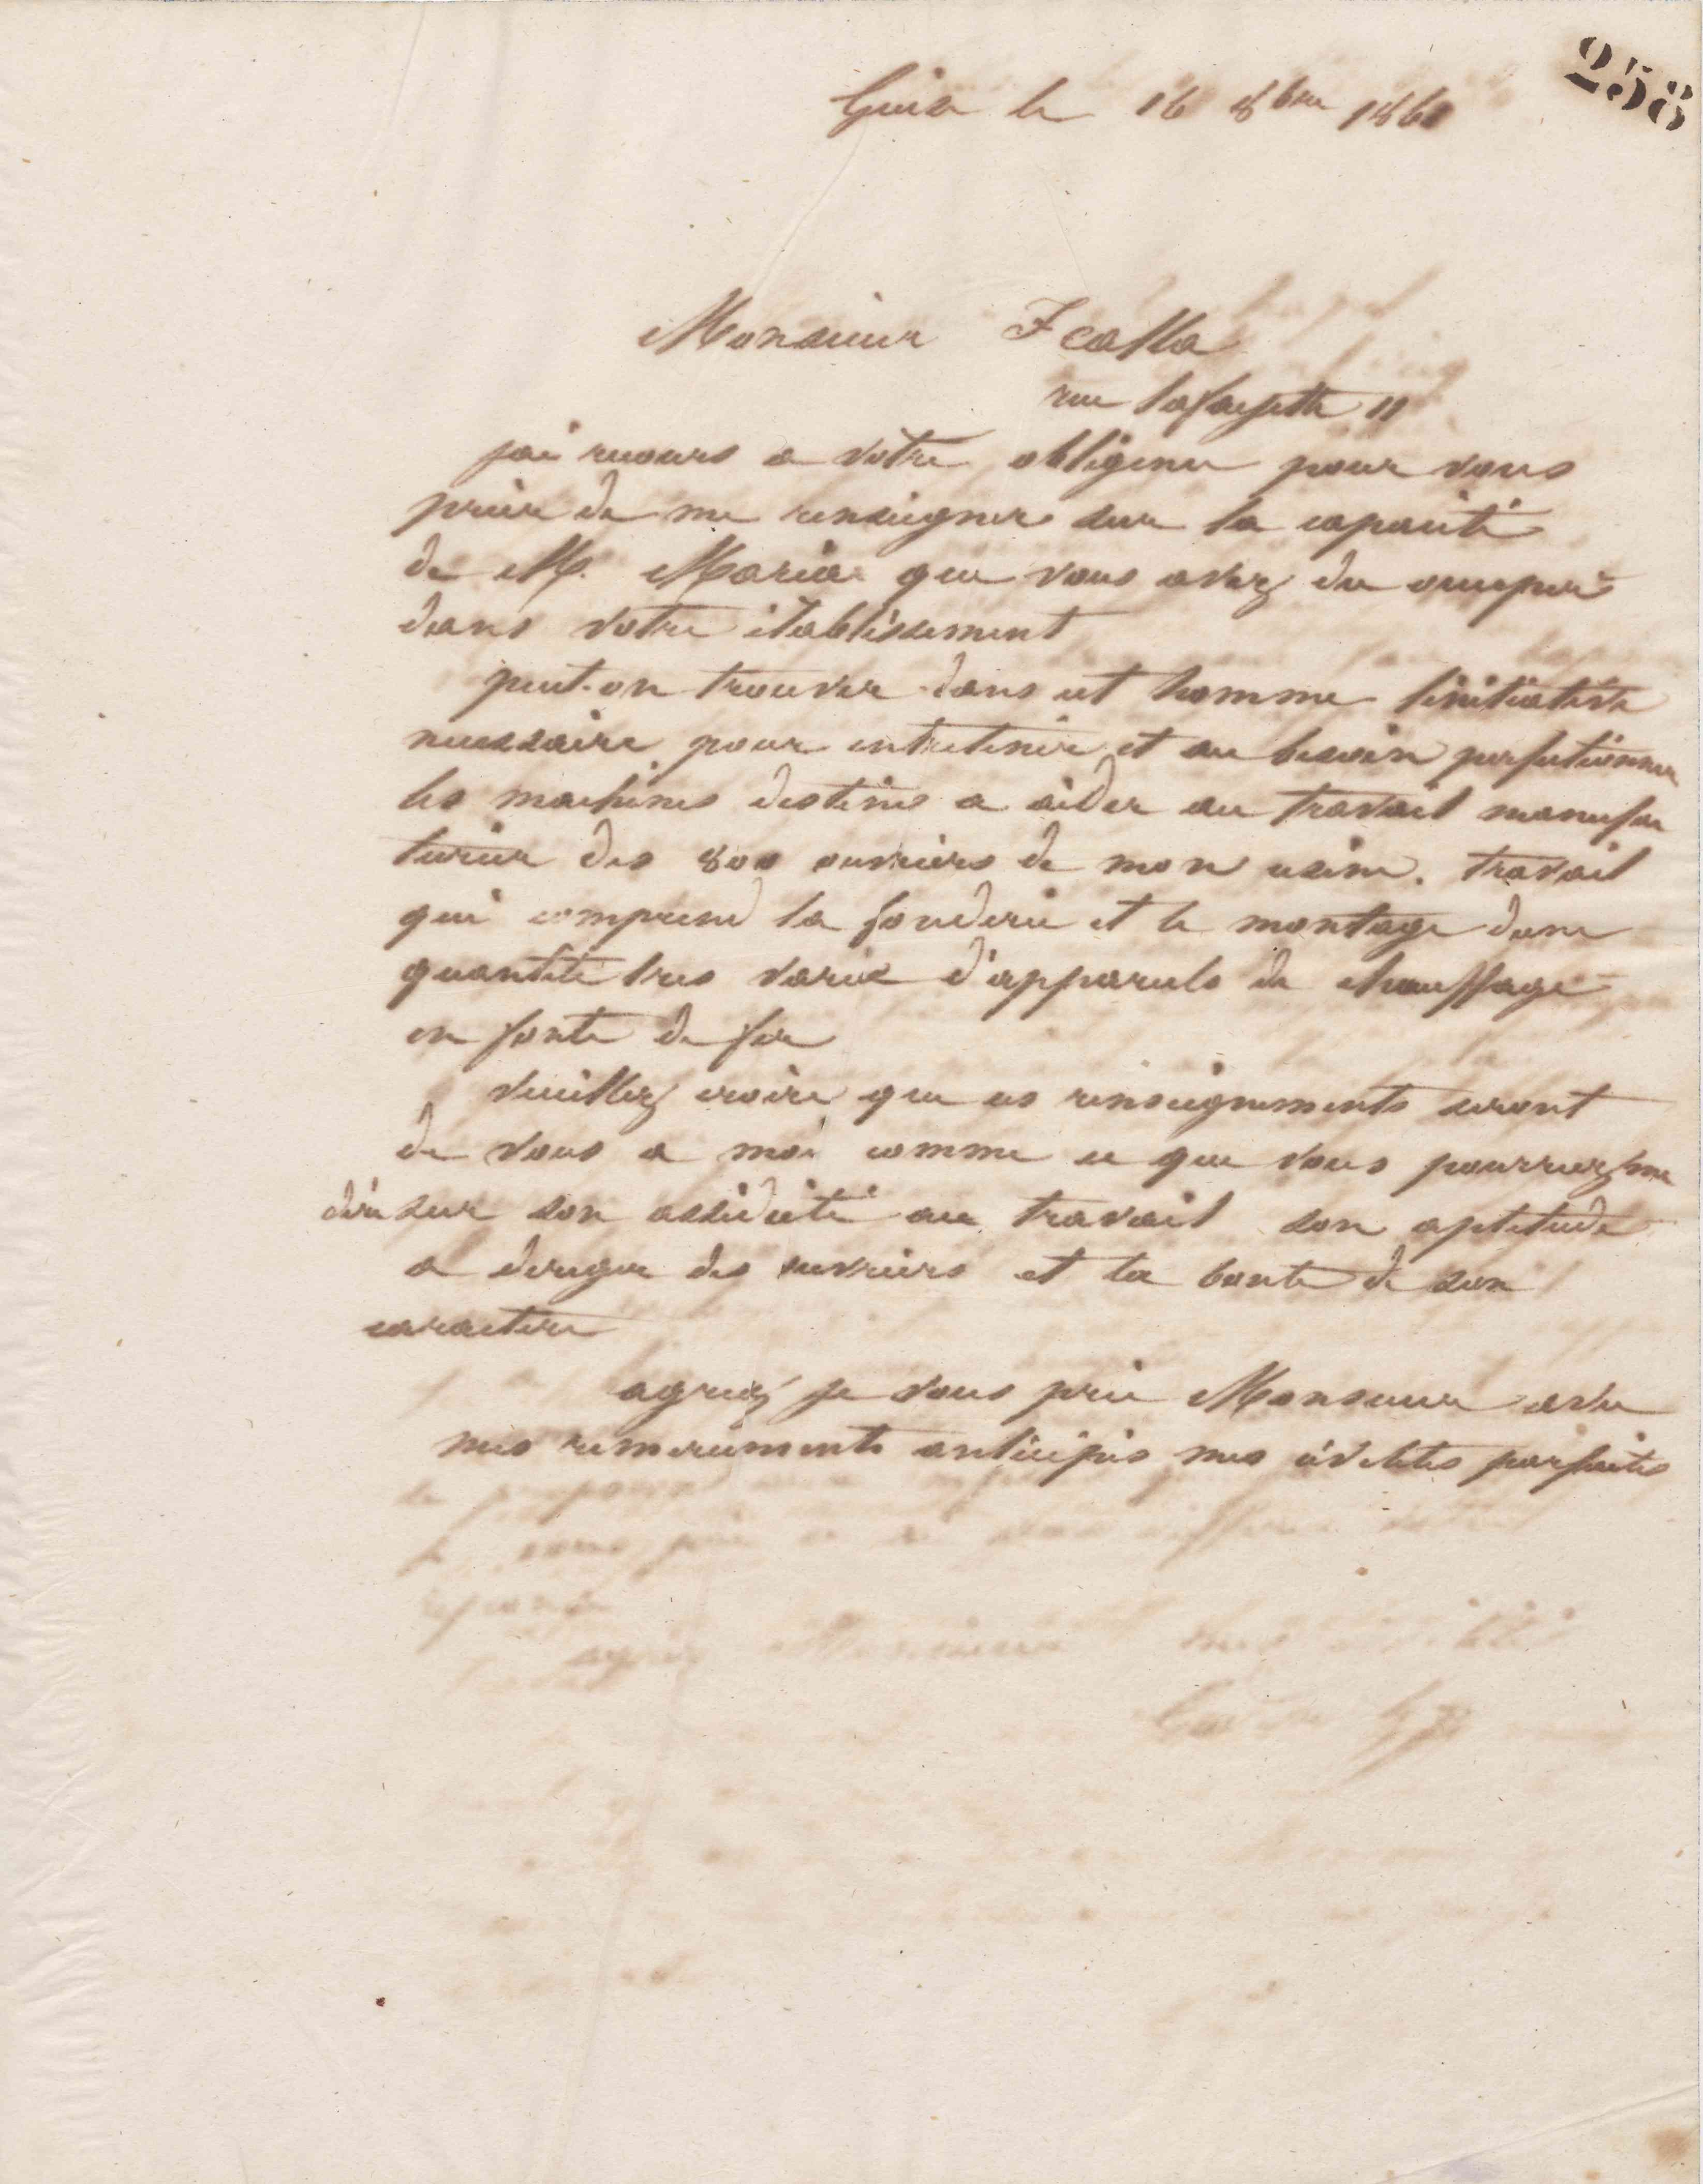 258
Guise le 16 8bre 1860
Monsieur F Calla
rue lafayette 11
jai recours a votre obligence pour vous
prier de me renseigner sur la capacité
de M. Maria que vous avez du occuper
dans votre établissement
peut-on trouver dans cet homme linitiative
necessaire pour entretenir et au besoin perfectionner
les machines destines a aider au travail manufac
turier des 800 ouvriers de mon usine. travail
qui comprend la fonderie et le montage dune
quantité tres variee d'appareils de chauffage
en fonte de fer
Veuillez croire que ces renseignements seront
de vous a moi comme ce que vous pourriez me
dire sur son assiduité au travail son aptitude
a diriger des ouvriers et la bonté de son
caractere
agreez je vous prie Monsieur avec
mes remerciments anticipés mes civilités parfaites